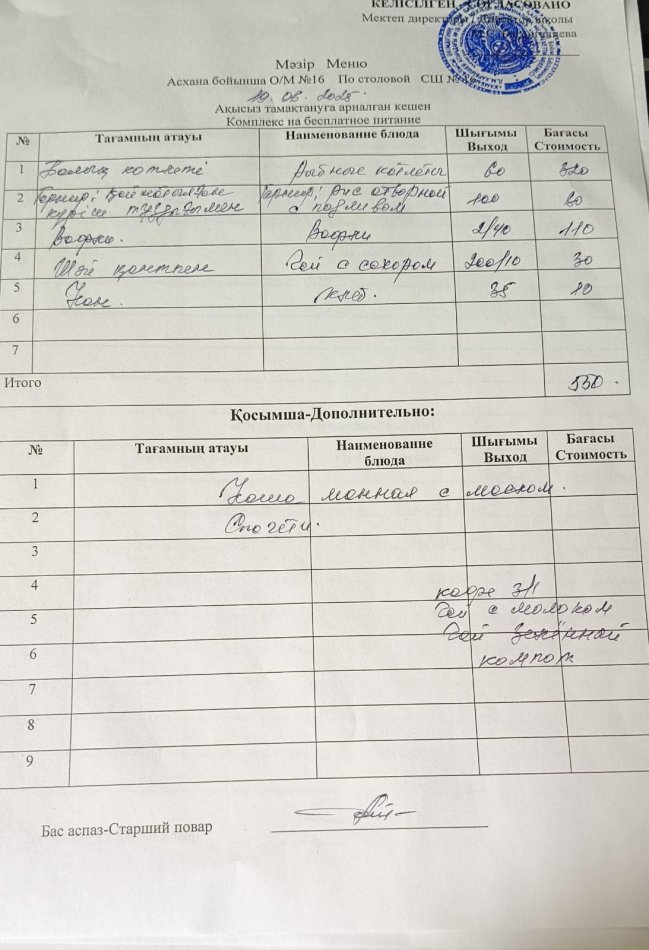 КЕЛІСІЛГЕН СОГЛАСОВАНО
Мектеп директоры Директор школы
Мәзір Меню
Асхана бойынша О/М №16 По столовой СШ №
19.08.2025.
Ақысыз тамақтануға арналған кешен
Комплекс на бесплатное питание
№ Тағамның атауы Наименование блюда Шығымы Выход Бағасы Стоимость
1 Балық котлеті Рыбные котлеты 60 320
2 Гарнир: күріш тұздығымен Гарнир: Рис отварной с подливом 100 80
3 Вафли. Вафли 2/40 110
4 Шәй қантпен Чай с сахаром 200/10 30
5 Нан. Хлеб. 35 10
6
7
Итого 550.
Қосымша-Дополнительно:
№ Тағамның атауы Наименование блюда Шығымы Выход Бағасы Стоимость
1 Каша манная с маслом.
2 Спагети.
3
4 кофе 3/1
5 Чай с молоком
Чай зелённый
6 компот
7
8
9
Бас аспаз-Старший повар